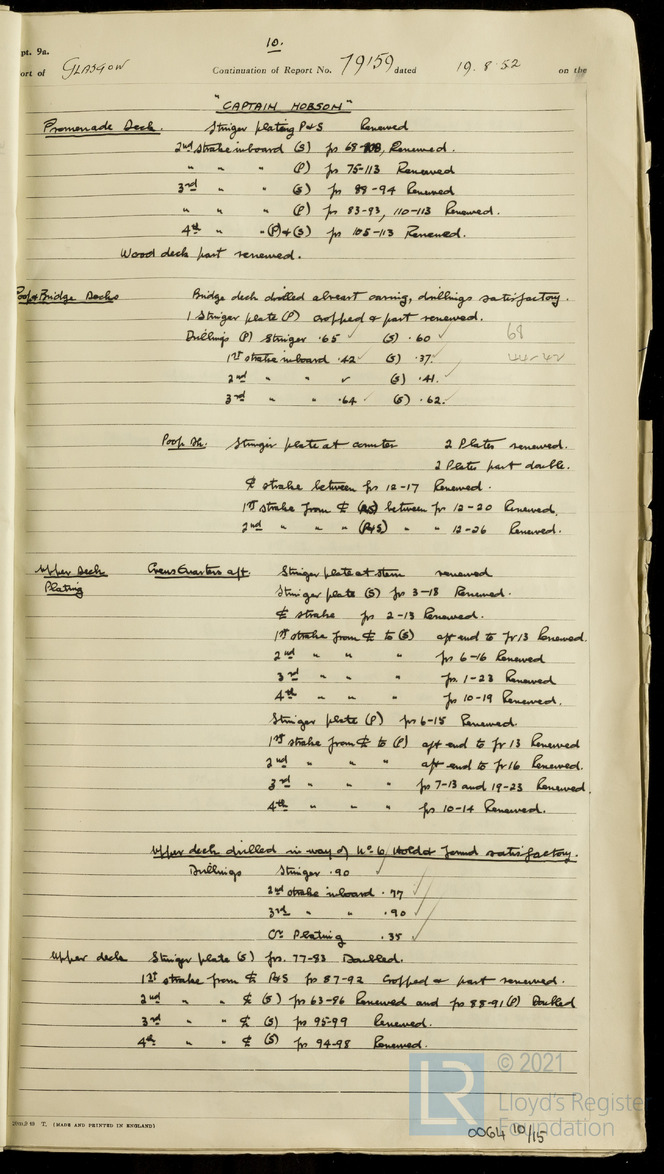 10.
pt. 9a.
ort of GLASGOW Continuation of Report No. 79159 dated 19.8.52 on the
"CAPTAIN HOBSON"
Promenade Deck. Stringer plating P&S Renewed
2nd Strake inboard (S) frs 68-108, Renewed.
" " " (P) frs 75-113 Renewed
3rd " " (S) frs 88-94 Renewed
" " " (P) frs 83-93, 110-113 Renewed.
4th " " (P)&(S) frs 105-113 Renewed.
Wood deck part renewed.
Poop & Bridge Decks Bridge deck drilled abreast casing, drillings satisfactory.
1 Stringer plate (P) cropped & part renewed.
Drillings (P) Stringer .65 ✓ (S) .60 ✓ 68
1st strake inboard .42 ✓ (S) .37. ✓ 44-42
2nd " " ✓ (S) .41. ✓
3rd " " .64 ✓ (S) .62. ✓
Poop Dk. Stringer plate at counter 2 Plates renewed.
2 Plates part double.
℄ strake between frs 12-17 Renewed.
1st strake from ℄ (P&S) between frs 12-20 Renewed.
2nd " " " (P&S) " " 12-26 Renewed.
Upper Deck Crews Quarters aft. Stringer plate at stern renewed
Plating Stringer plate (S) frs 3-13 Renewed.
℄ strake frs 2-13 Renewed.
1st strake from ℄ to (S) aft end to fr 13 Renewed.
2nd " " " frs 6-16 Renewed
3rd " " " frs. 1-23 Renewed
4th " " " frs 10-19 Renewed.
Stringer plate (P) frs 6-15 Renewed.
1st strake from ℄ to (P) aft end to fr 13 Renewed
2nd " " " aft end to fr 16 Renewed.
3rd " " " frs 7-13 and 19-23 Renewed.
4th " " " frs 10-14 Renewed.
Upper deck drilled in way of No. 6 Hold & found satisfactory.
Drillings Stringer .90 ✓
2nd strake inboard .77 ✓
3rd " " .90 ✓
Plating .35 ✓
Upper deck Stringer plate (S) frs. 77-83 Doubled.
1st strake from ℄ P&S frs 87-92 Cropped & part renewed.
2nd " " ℄ (S) frs 63-86 Renewed and frs 88-91 (P) Doubled
3rd " " ℄ (S) frs 95-99 Renewed.
4th " " ℄ (S) frs 94-98 Renewed.
T. (MADE AND PRINTED IN ENGLAND)
LR © 2021
Lloyd's Register
Foundation
0064 10/15